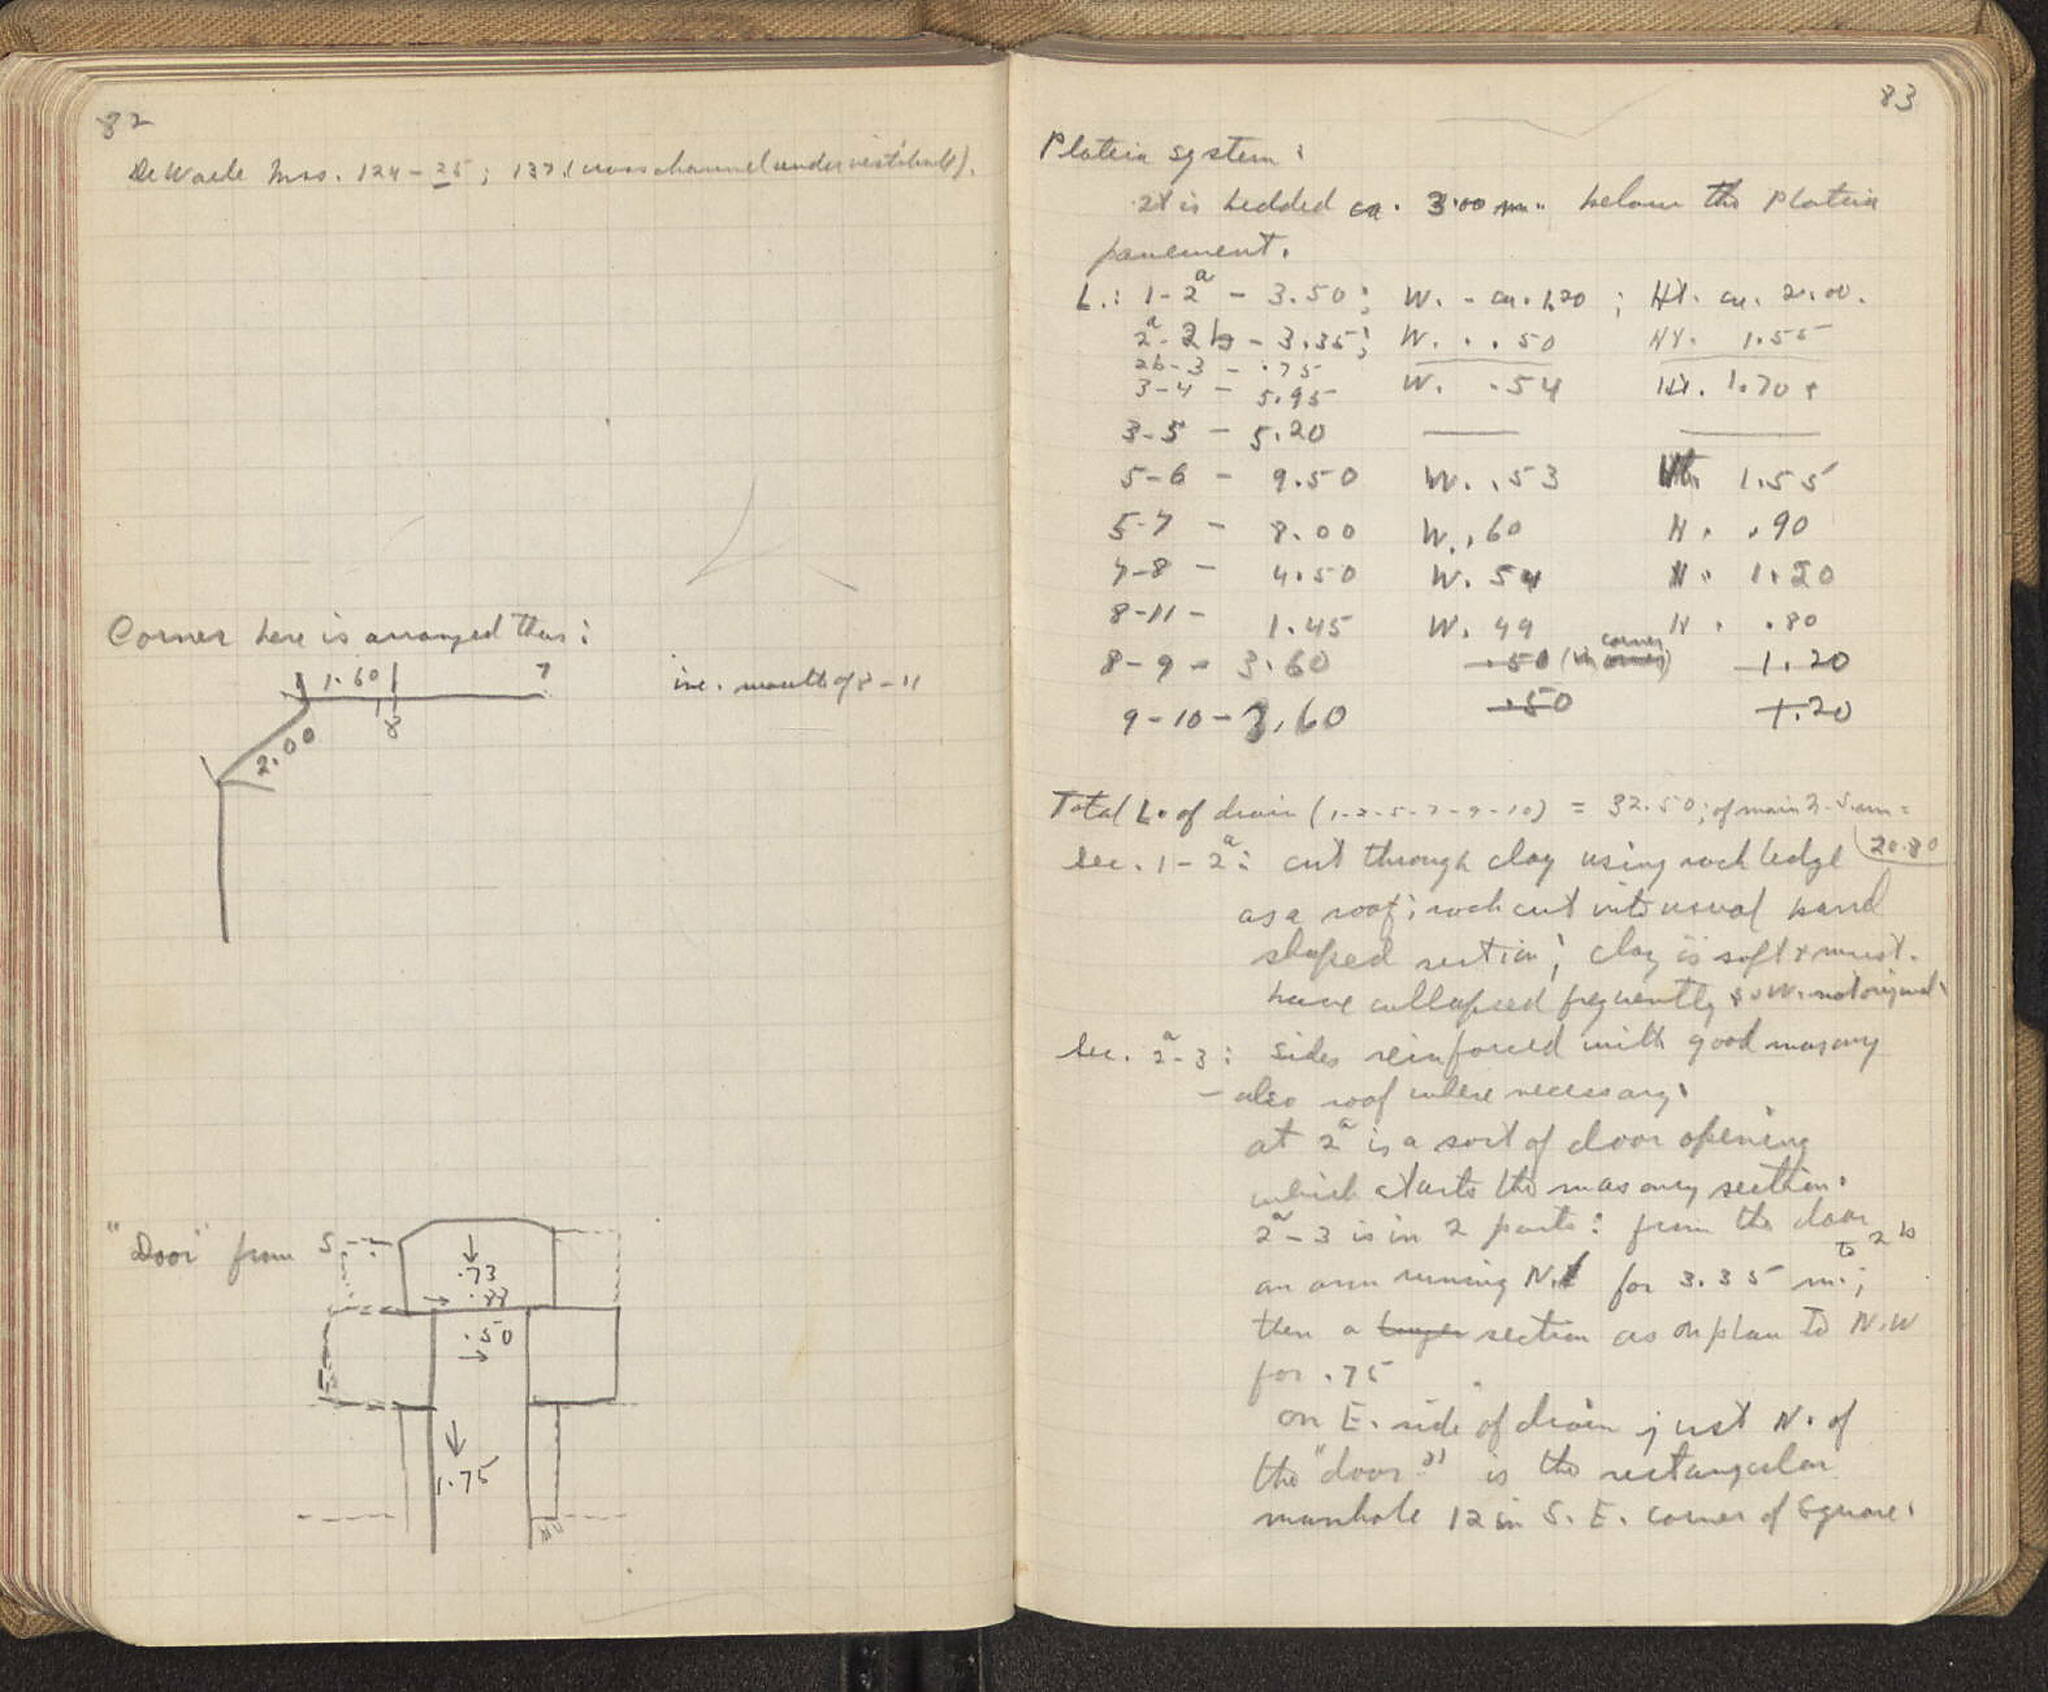 82
De Waele Mss. 124-25; 137 (cross channel under vestibule).
Corner here is arranged thus:
1.60
7
8
2.00
i.e. mouth of 8-11
"Door" from S.
.73
.88
.50
1.75
83
Plateia system:
It is bedded ca. 3.00 m. below the Plateia
pavement.
L.: 1-2a - 3.50; W. - ca. 1.20; Ht. ca. 2.00.
2a-2b - 3.35; W. .50 Ht. 1.55
2b-3 - .75
3-4 - 5.95 W. .54 Ht. 1.70
3-5 - 5.20
5-6 - 9.50 W. .53 Ht. 1.55
5-7 - 8.00 W. .60 H. .90
7-8 - 4.50 W. 54 H. 1.20
8-11 - 1.45 W. 49 H. .80
8-9 - 3.60 .50 (in corner) 1.20
9-10 - 3.60 .50 1.20
Total L. of drain (1-2-5-7-9-10) = 32.50; of main =
20.80
Sec. 1-2a: cut through clay using rock ledge
as a roof; rock cut into usual
shaped section; clay is soft & must
have collapsed frequently so W. not original.
Sec. 2a-3: sides reinforced with good masonry
- also roof where necessary.
at 2a is a sort of door opening
which starts the masonry section.
2a-3 is in 2 parts: from the door
to 2b
an arm running N. for 3.35 m.;
then a longer section as on plan to N.W
for .75
on E. side of drain just N. of
the "door" is the rectangular
manhole 12 in S.E. corner of Square.